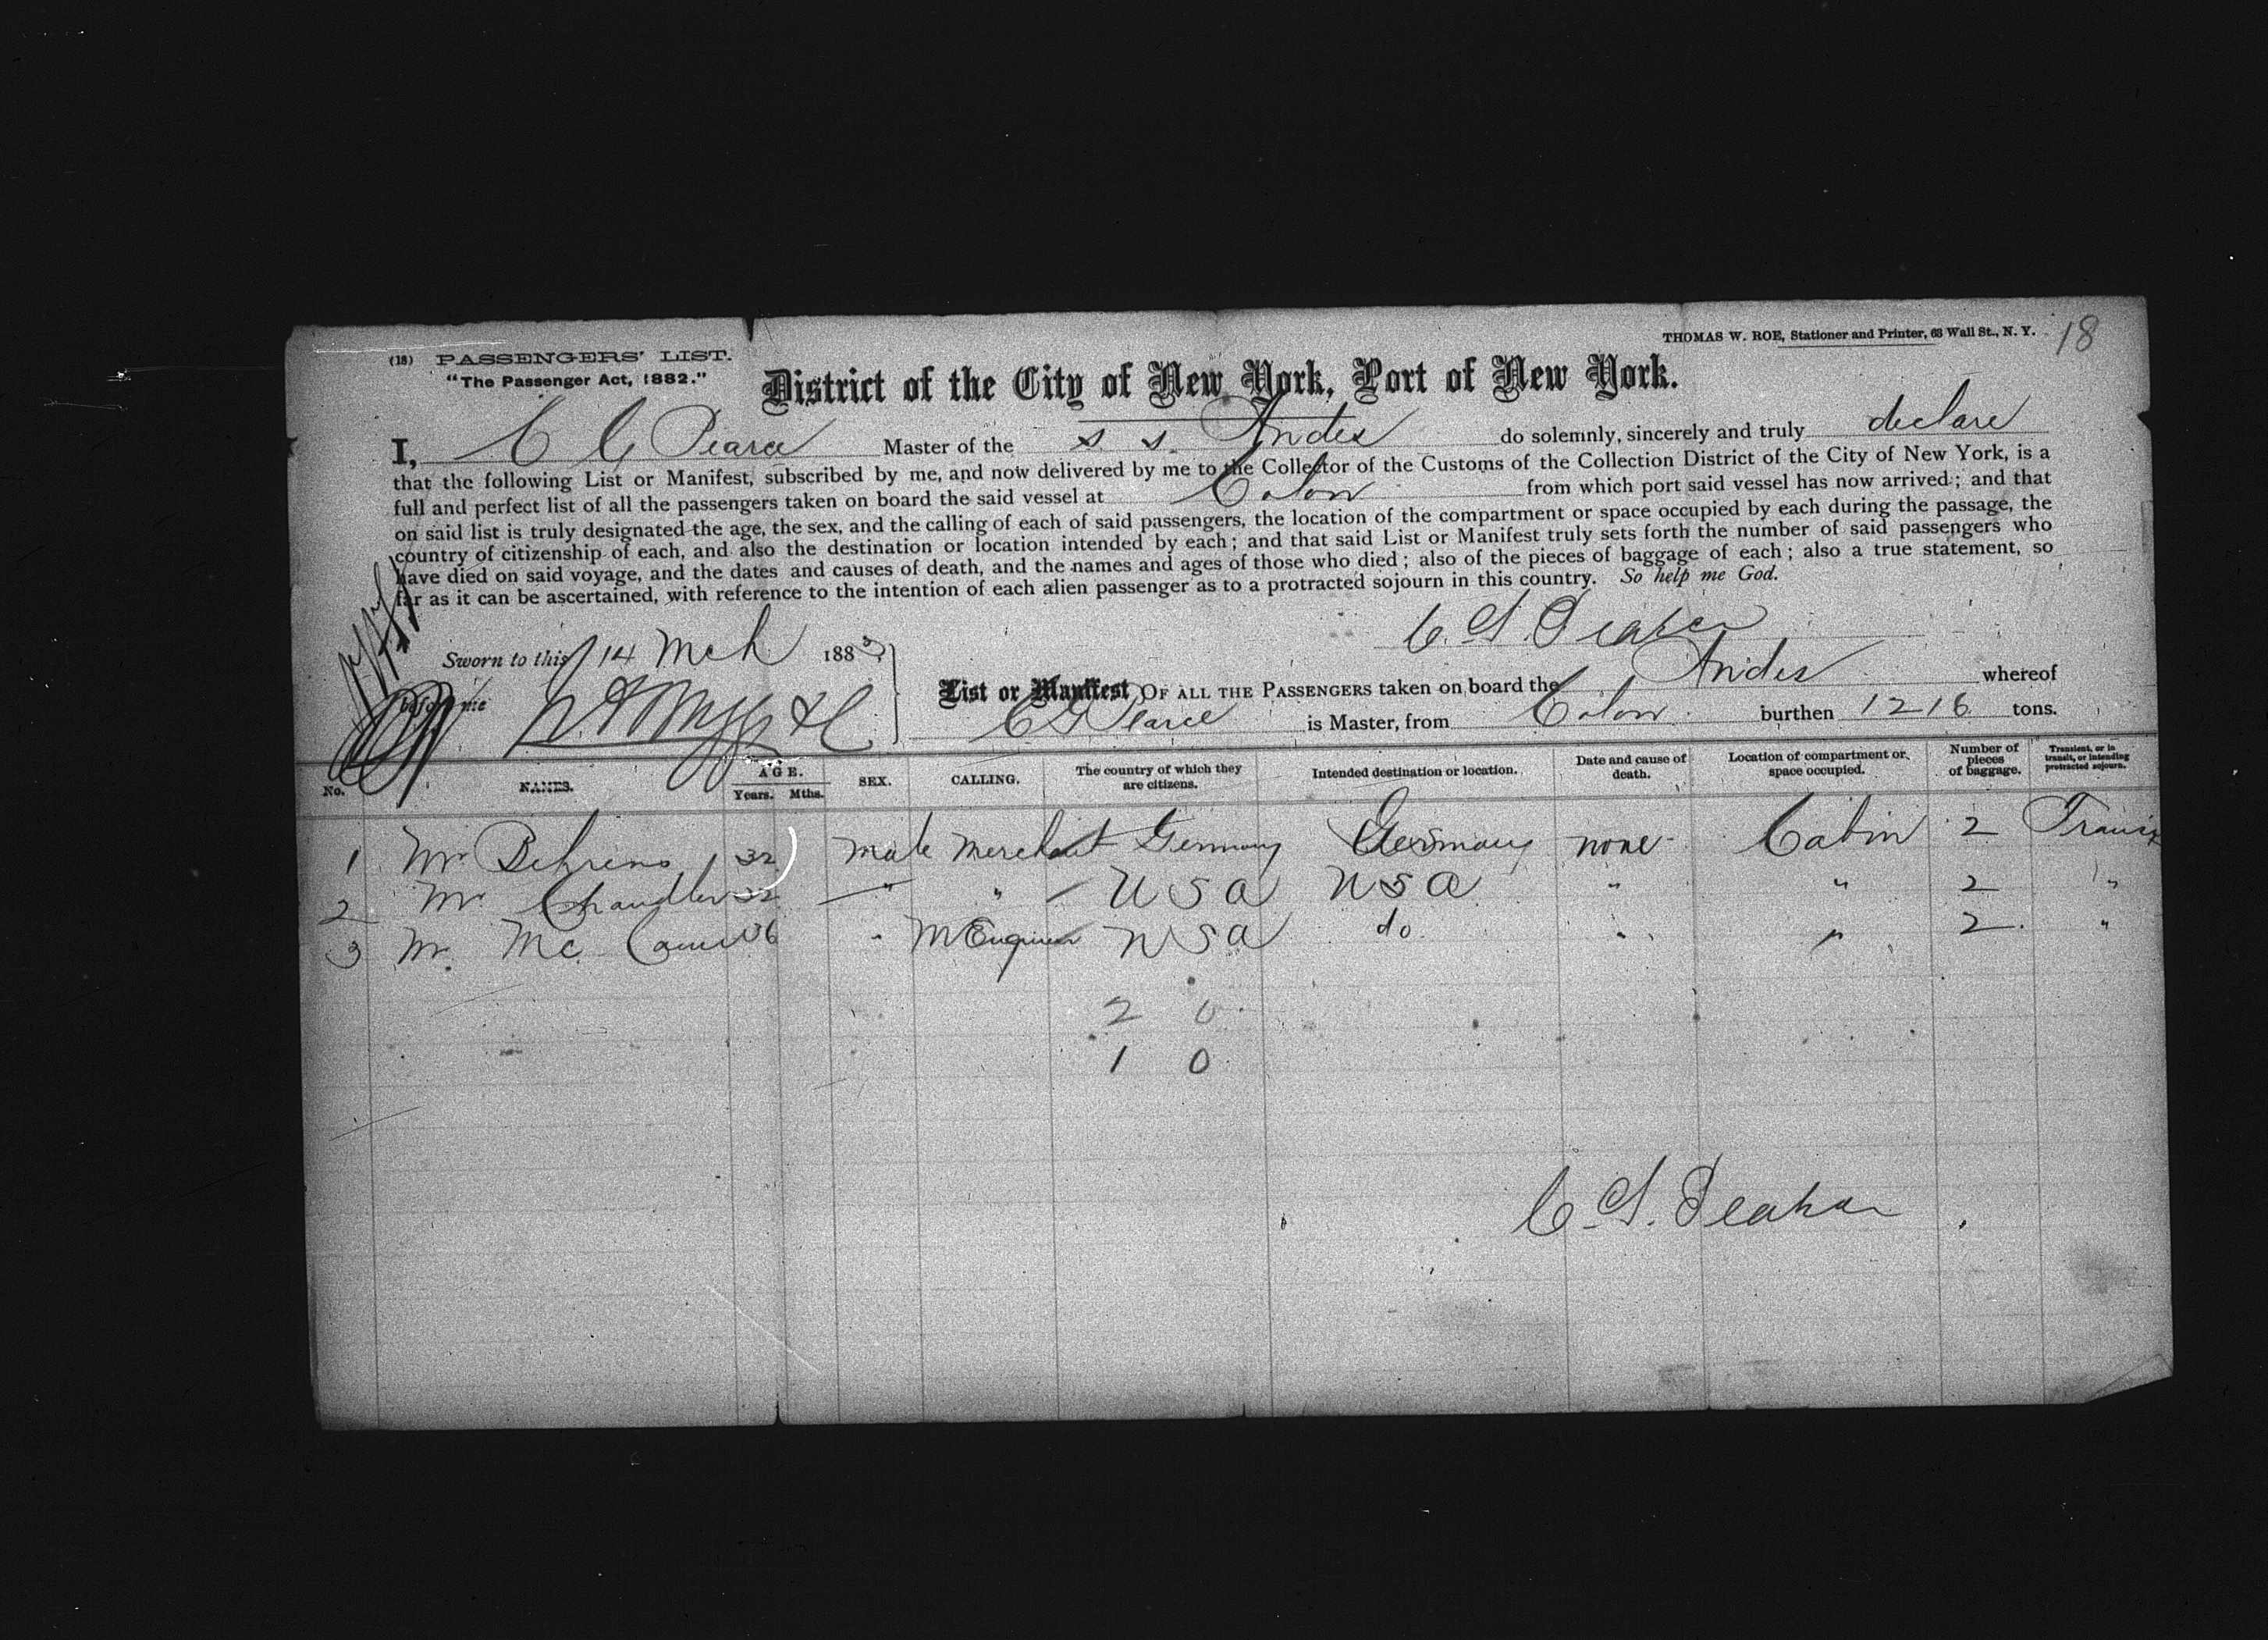 THOMAS W. ROE, Stationer and Printer, 63 Wall St., N. Y. 18
(18) PASSENGERS' LIST.
"The Passenger Act, 1882."
District of the City of New York, Port of New York.
I, C G Pearce Master of the S. S. Andes do solemnly, sincerely and truly declare
that the following List or Manifest, subscribed by me, and now delivered by me to the Collector of the Customs of the Collection District of the City of New York, is a
full and perfect list of all the passengers taken on board the said vessel at Colon from which port said vessel has now arrived; and that
on said list is truly designated the age, the sex, and the calling of each of said passengers, the location of the compartment or space occupied by each during the passage, the
country of citizenship of each, and also the destination or location intended by each; and that said List or Manifest truly sets forth the number of said passengers who
have died on said voyage, and the dates and causes of death, and the names and ages of those who died; also of the pieces of baggage of each; also a true statement, so
far as it can be ascertained, with reference to the intention of each alien passenger as to a protracted sojourn in this country. So help me God.
Sworn to this 14 Mch 1883
before me
List or Manifest OF ALL THE PASSENGERS taken on board the Andes whereof
C G Pearce is Master, from Colon burthen 1216 tons.
No. NAMES. AGE. Years. Mths. SEX. CALLING. The country of which they are citizens. Intended destination or location. Date and cause of death. Location of compartment or space occupied. Number of pieces of baggage. Transient, or in transit, or intending protracted sojourn.
1 Mr Behrens 32 Male Merchant Germany Germany none Cabin 2 Transit
2 Mr Chandler 32 " " U S A U S A " " 2 "
3 Mr. Mc 36 " M Engineer U S A do. " " 2 "
2 0
1 0